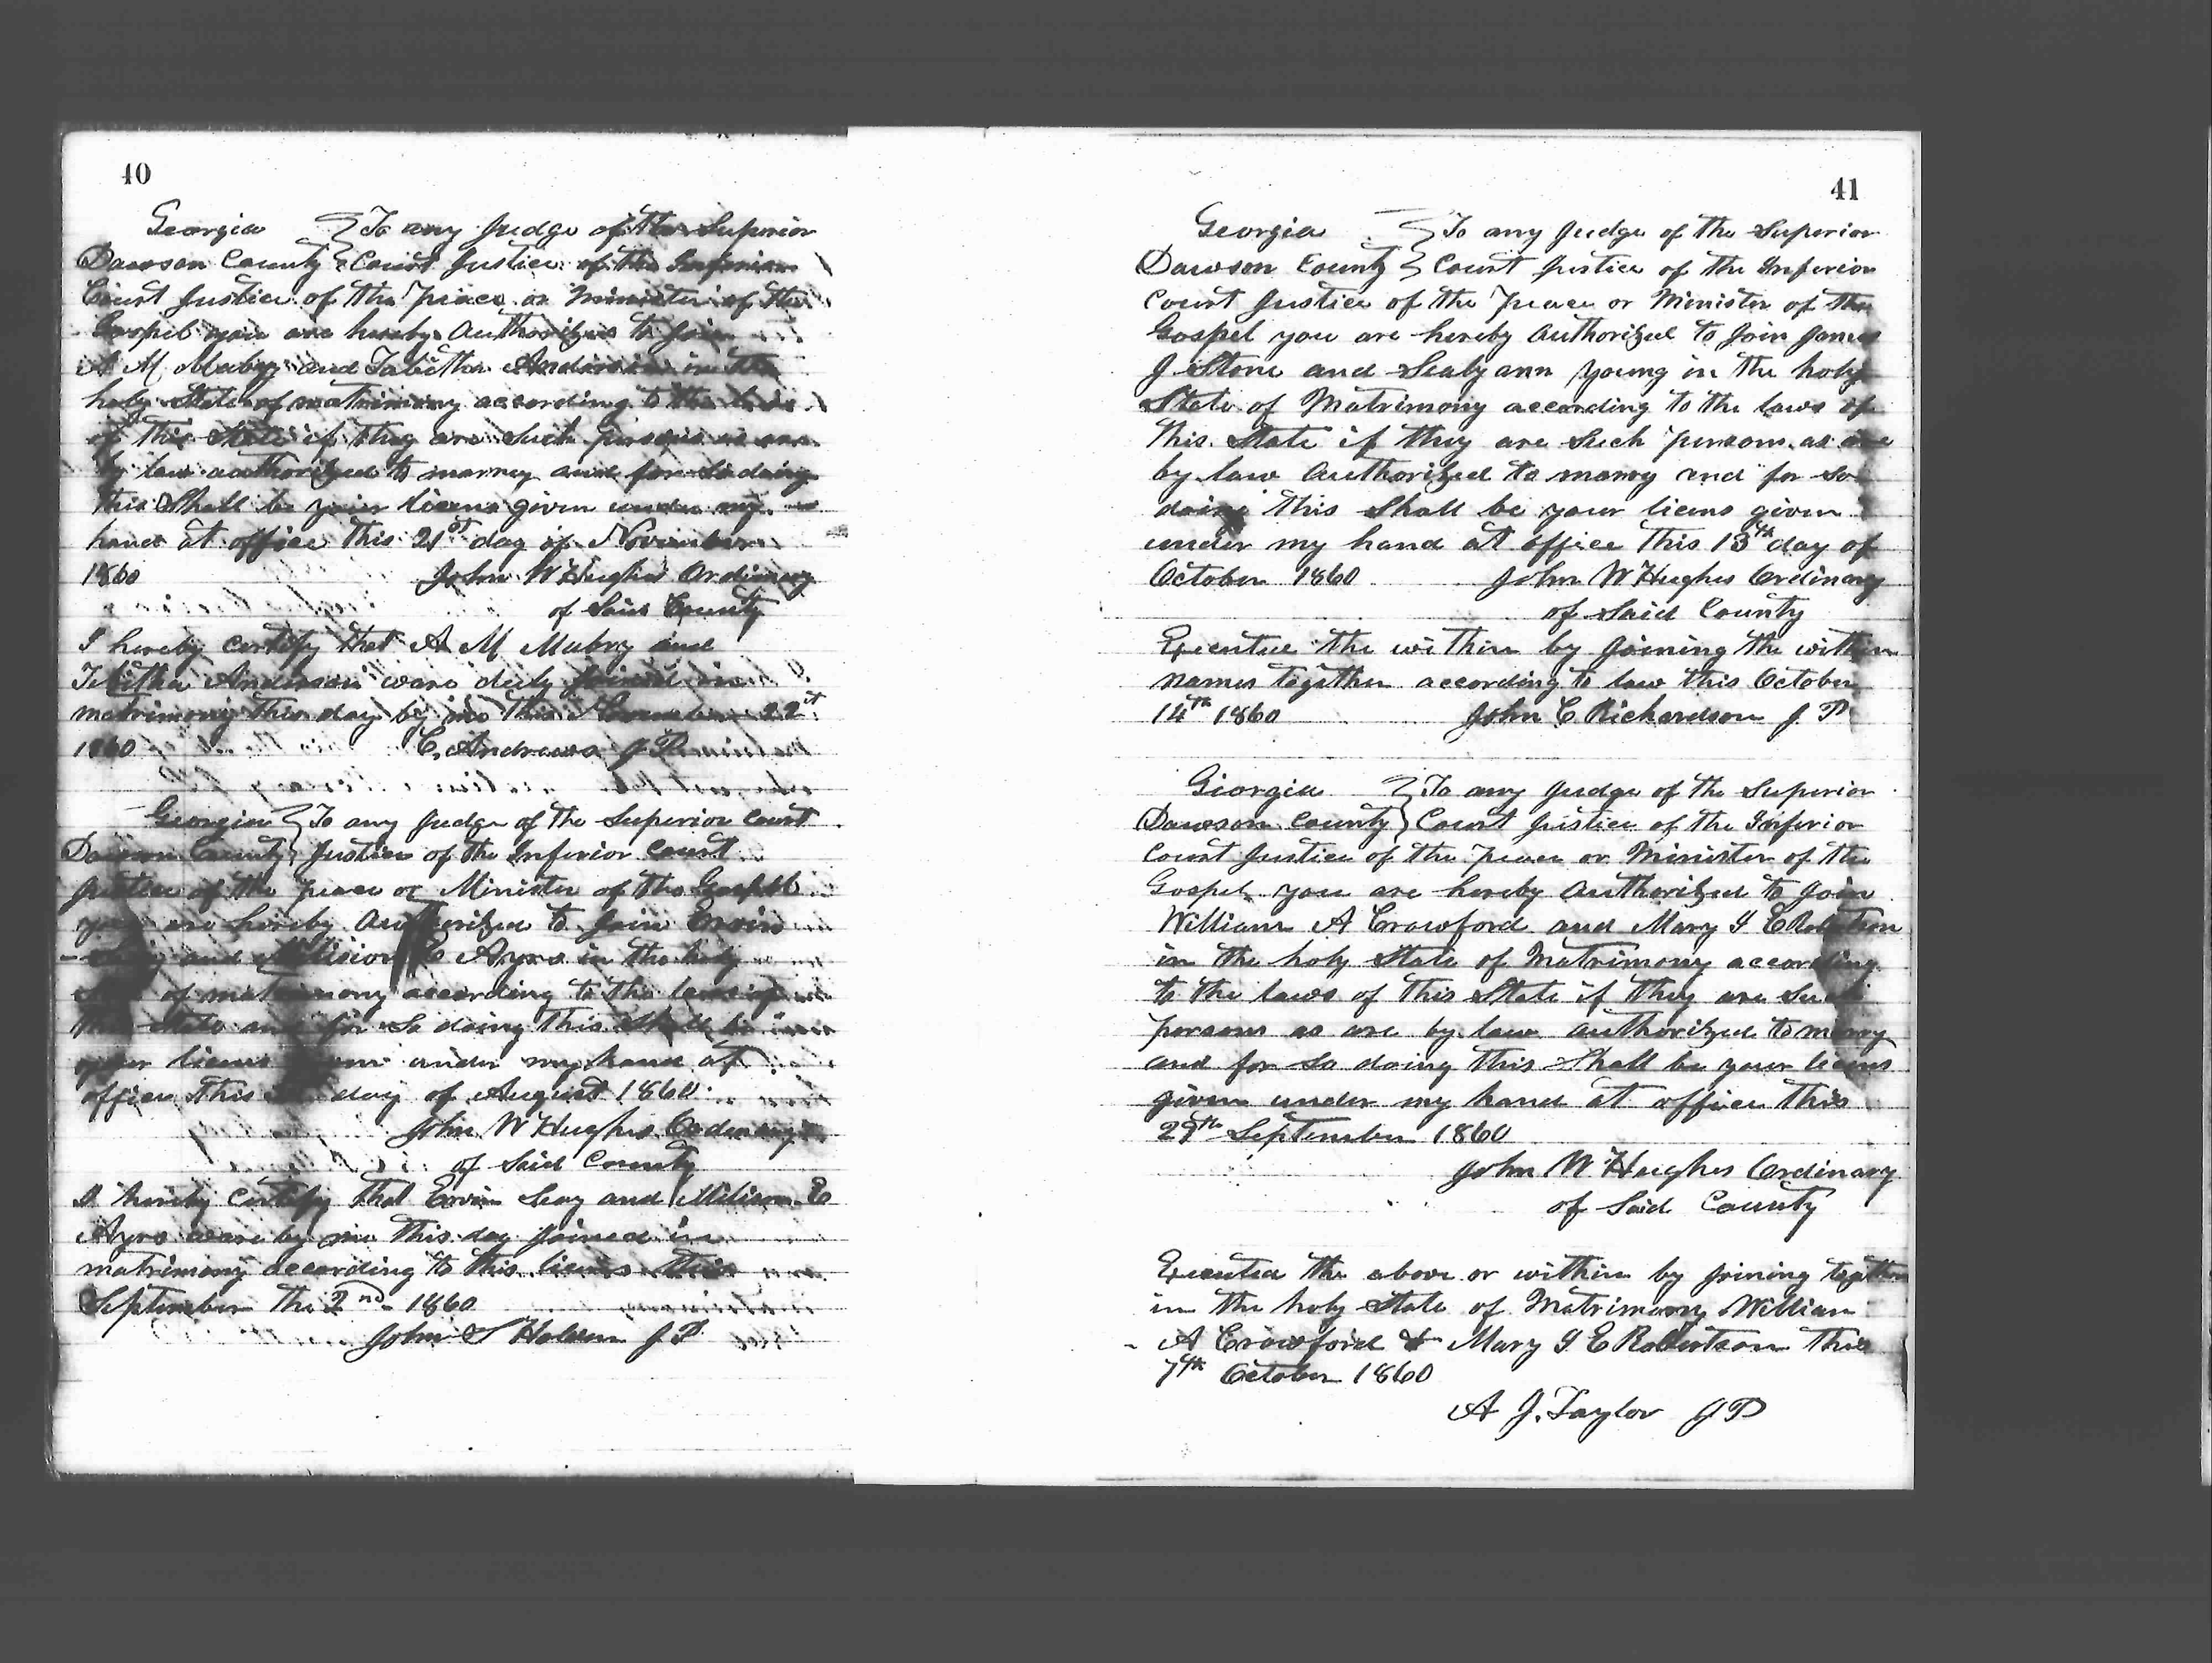 40
Georgia } To any Judge of the Superior
Dawson County } Court Justice of the Inferior
Court Justice of the peace or Minister of the
Gospel you are hereby authorized to join
A M Mabry and Tabitha Anderson in the
holy State of matrimony according to the laws
of this State if they are Such persons as are
by law authorized to marry and for so doing
this Shall be your licens given under my
hand at office this 21st day of November
1860 John W Hughes Ordinary
of Said County
I hereby certify that A M Mabry and
Tebitha Anderson ware duly joined in
matrimony this day by me this November 22st
1860 C. Andrews J P
Georgia } To any Judge of the Superior Court
Dawson County } Justice of the Inferior Court
Justice of the peace or Minister of the Gospel
you are hereby authorized to join Ervin
and E Ayrs in the holy
State of matrimony according to the laws of
this State and for So doing this Shall be
your licens given under my hand at
office this day of August 1860
John W Hughes Ordinary
of Said County
I hereby certify that Ervin Seay and Milison E
Ayrs ware by me this day joined in
matrimony according to this licens this
September the 2nd 1860
John S Holden J P
41
Georgia } To any Judge of the Superior
Dawson County } Court Justice of the Inferior
Court Justice of the peace or Minister of the
Gospel you are hereby authorized to join James
J Stone and Sealyann Young in the holy
State of Matrimony according to the laws of
this State if they are Such persons as are
by law authorized to marry and for so
doing this Shall be your licens given
under my hand at office this 13th day of
October 1860 John W Hughes Ordinary
of Said County
Executed the within by joining the within
names together according to law this October
14th 1860 John C Richardson J P
Georgia } To any Judge of the Superior
Dawson County } Court Justice of the Inferior
Court Justice of the peace or Minister of the
Gospel you are hereby authorized to join
William A Crawford and Mary I E Robertson
in the holy State of Matrimony according
to the laws of this State if they are Such
persons as are by law authorized to marry
and for so doing this Shall be your licens
given under my hand at office this
29th September 1860
John W Hughes Ordinary
of Said County
Executed the above or within by joining together
in the holy State of Matrimony William
A Crawford & Mary I E Robertson this
7th October 1860
A J. Taylor J P